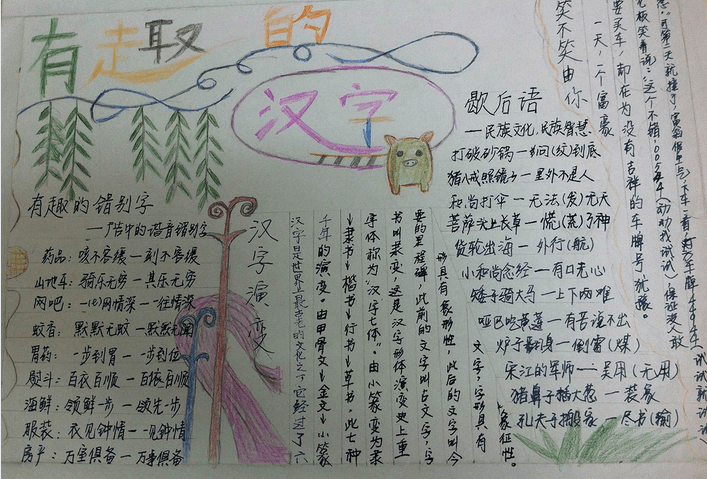 有趣的
汉字
有趣的错别字
药品：咳不容缓一刻不容缓
山地车：骑乐无穷一其乐无穷
蚊香：默默无蚊一默默无闻
胃药：一步到胃一一步到位
熨斗：百衣百顺一百依百顺
海鲜：领鲜一步一领先一步
服装：衣见钟情一一见钟情
房产：万室俱备一万事俱备
汉字演变
汉字是世界上最古老的文化之一，它经过了六
千年的演变。由甲骨文→金文→小篆
→隶书→楷书→行书→草书，此七种
字体称为“汉字七体”。由小篆变为隶
书叫隶变，这是汉字形体演变史上重
要的里程碑，此前的文字叫古文字，字
形具有象形性，此后的文字叫今
文字，字形具有
象征性。
歇后语
一民族文化，民族智慧
打破砂锅一问(纹)到底
猪八戒照镜子一里外不是人
和尚打伞一无法(发)无天
菩萨头上长草一慌(荒)了神
货轮出海一外行(航)
小和尚念经一有口无心
矮子骑大马一上下两难
哑巴吃黄莲一有苦说不出
炉子翻身一倒霉(煤)
宋江的军师一吴用(无用)
猪鼻子插大葱一装象
孔夫子搬家一尽书(输)
笑不笑由你
一天，一个富豪
要买车，却在为没有吉祥的车牌号犹豫。